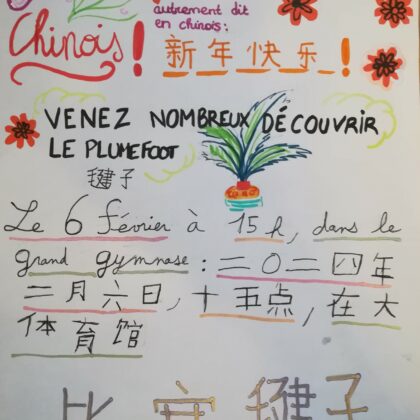 autrement dit
en chinois:
Chinois !
新年快乐 !
VENEZ NOMBREUX DÉCOUVRIR
LE PLUMEFOOT
毽子
Le 6 février à 15 h, dans le
grand gymnase : 二〇二四年
二月六日, 十五点, 在大
体育馆
毽子